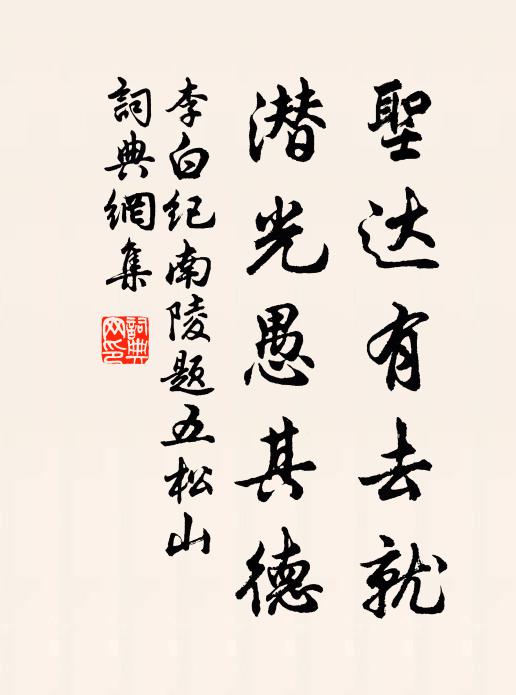 聖达有去就
潜光愚其德
李白纪南陵题五松山
詞典網集
詞典网印